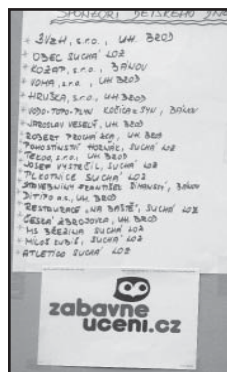 SPONZOŘI DĚTSKÉHO DNE
+ 3VZH, s.r.o., UH. BROD
+ OBEC SUCHÁ LOZ
+ KOŽAP, s.r.o., BÁNOV
+ VOMA, s.r.o., UH BROD
+ HRUŠKA, s.r.o., UH BROD
+ VODO-TOPO-PLYN KOČICA a SYN, BÁNOV
+ JAROSLAV VESELÝ, UH. BROD
+ ROBERT PROCHÁZKA, UH. BROD
+ POHOSTINSTVÍ HORŇÁK, SUCHÁ LOZ
+ TEKOO, s.r.o., UH BROD
+ JOSEF VYSTRČIL, SUCHÁ LOZ
+ PLETNICE SUCHÁ LOZ
+ STAVEBNINY FRANTIŠEK, BÁNOV
+ DITIPO a.s., UH. BROD
+ RESTAURACE "NA BAŠTĚ", SUCHÁ LOZ
+ ČESKÁ ZBROJOVKA, UH. BROD
+ MS BŘEZINA SUCHÁ LOZ
+ MILOŠ, SUCHÁ LOZ
+ ATLETICO SUCHÁ LOZ
zabavne
uceni.cz